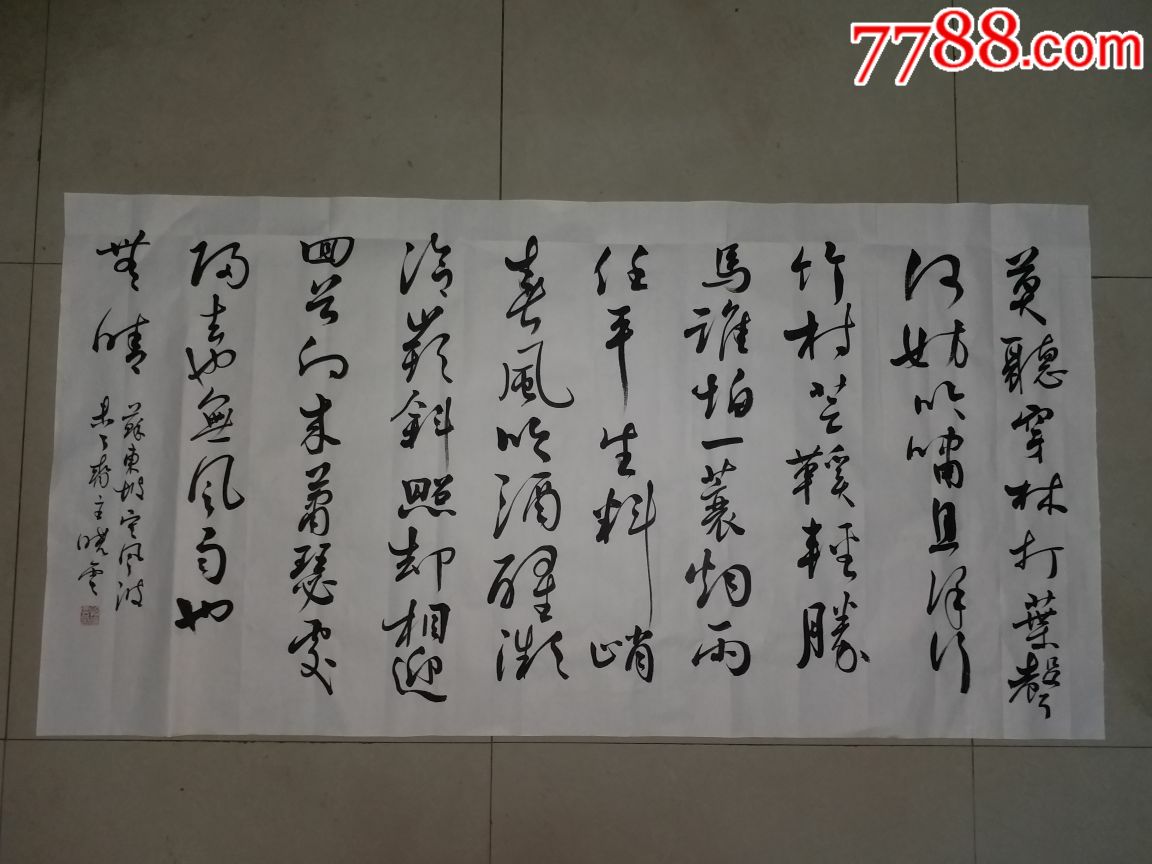 莫聽穿林打葉聲
何妨吟嘯且徐行
竹杖芒鞵輕勝
馬誰怕一蓑烟雨
任平生料峭
春風吹酒醒微
冷山頭斜照却相迎
回首向來蕭瑟處
歸去也無風雨也
無晴
蘇東坡定風波
齋主曉雲
7788.com